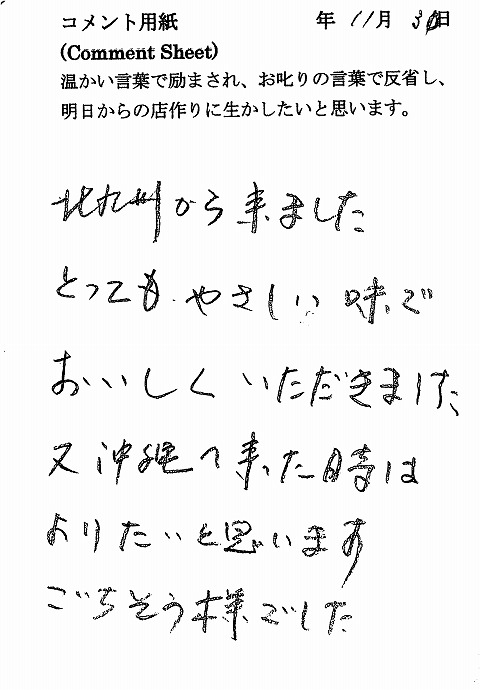 コメント用紙 年 11月 30日
(Comment Sheet)
温かい言葉で励まされ、お叱りの言葉で反省し、
明日からの店作りに生かしたいと思います。
北九州から来ました
とっても やさしい 味で
おいしく いただきました
又 沖縄へ来た時は
よりたいと思います
ごちそう様でした